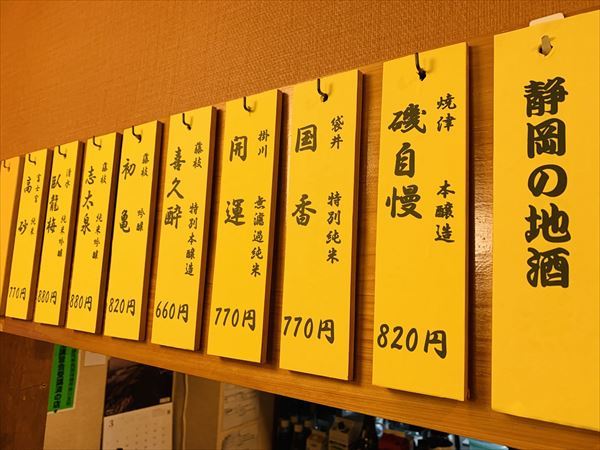 静岡の地酒
焼津 本醸造
磯自慢
820円
袋井 特別純米
国香
770円
掛川 無濾過純米
開運
770円
藤枝 特別本醸造
喜久醉
660円
藤枝 吟醸
初亀
820円
藤枝 純米吟醸
志太泉
880円
清水 純米吟醸
臥龍梅
880円
富士宮 純米
高砂
770円
3